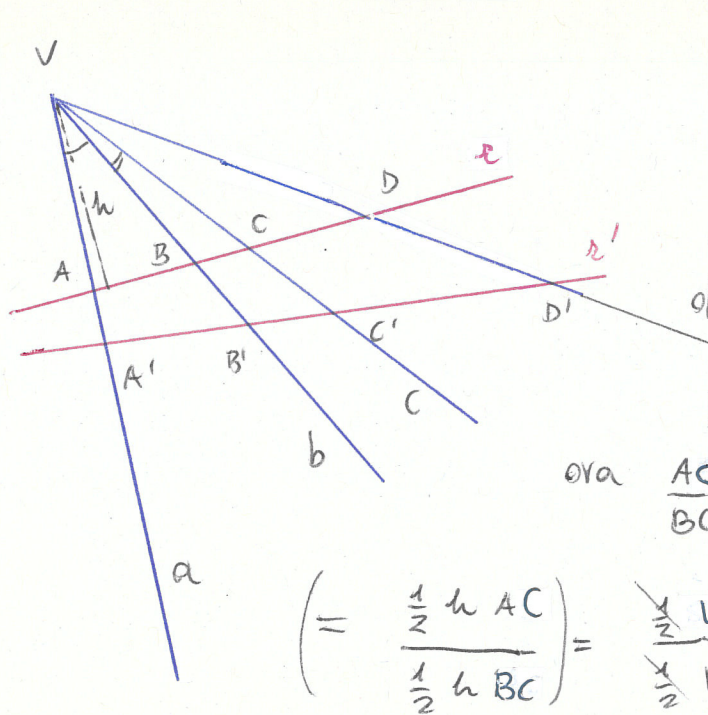 V
h
D
r
C
B
A
r'
D'
C'
B'
A'
C
b
a
ora AC/BC
(= ½ h AC / ½ h BC) = ½ / ½